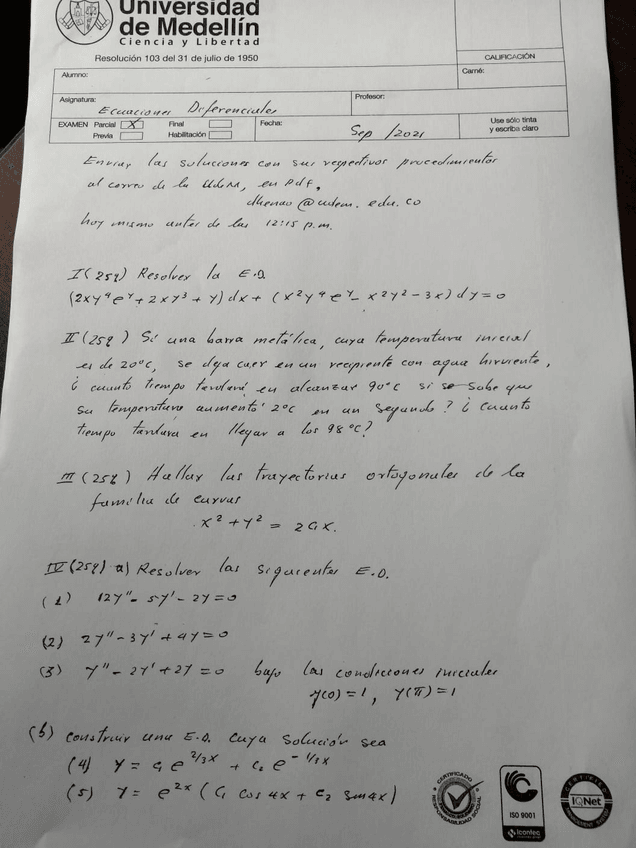 Universidad
de Medellín
Ciencia y Libertad
Resolución 103 del 31 de julio de 1950
CALIFICACIÓN
Alumno:
Carné:
Asignatura: Ecuaciones Diferenciales
Profesor:
EXAMEN Parcial X Final
Previa Habilitación
Fecha: Sep/2021
Use sólo tinta
y escriba claro
Enviar las soluciones con sus respectivos procedimientos
al correo de la UdeM, en Pdf,
dhenao@udem.edu.co
hoy mismo antes de las 12:15 p.m.
I (25%) Resolver la E.D.
(2xy⁴eʸ + 2xy³ + y)dx + (x²y⁴eʸ - x²y² - 3x)dy = 0
II (25%) Si una barra metálica, cuya temperatura inicial
es de 20°C, se deja caer en un recipiente con agua hirviente,
¿cuanto tiempo tardará en alcanzar 90°C si se sabe que
su temperatura aumentó 2°C en un segundo? ¿cuanto
tiempo tardara en llegar a los 98°C?
III (25%) Hallar las trayectorias ortogonales de la
familia de curvas
x² + y² = 2C₁x.
IV (25%) a) Resolver las siguientes E.D.
(1) 12y'' - 5y' - 2y = 0
(2) 2y'' - 3y' + 4y = 0
(3) y'' - 2y' + 2y = 0 bajo las condiciones iniciales
y(0) = 1, y(π) = 1
(b) construir una E.D. cuya solución sea
(4) y = c₁e^2/3x + c₂e^-1/3x
(5) y = e²ˣ(c₁ cos 4x + c₂ sen 4x)
CERTIFICADO
RESPONSABILIDAD SOCIAL
ISO 9001
icontec
CERTIFIED
IQNet
MANAGEMENT SYSTEM